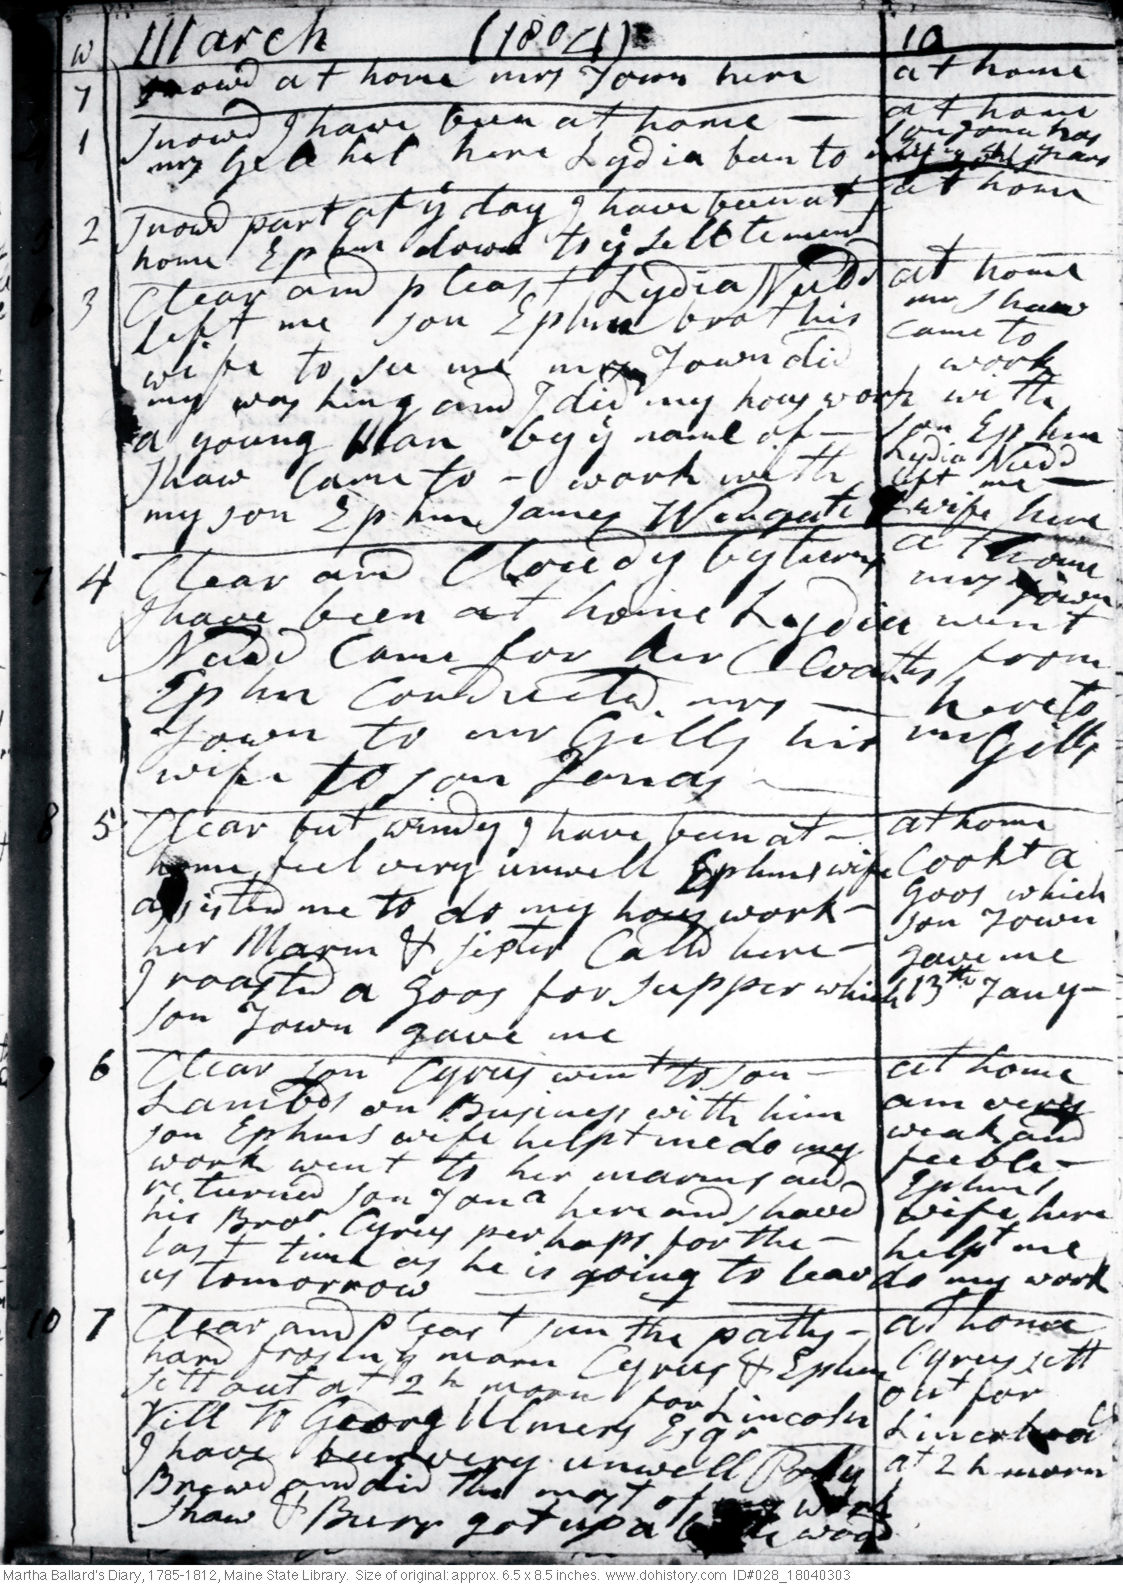 W March (1804) 10
7 Snowd at home mrs Town here
at home
1 Snowd I have been at home —
mrs Getchel here Lydia been to
at home
2 Snowd part of ÿ day I have been at
home Ephm down to ÿ settlement
at home
8 3 Clear and pleast Lydia Nudd
left me son Ephm brot his
wife to see me mrs Town did
my washing and I did my hous work
a young Man by ÿ name of —
Shaw Came to — work with
my son Ephm James Wingate
at home
mr Shaw
came to
work
with
son Ephm
Lydia Nudd
left me —
wife here
7 4 Clear and Cloudy by turns
I have been at home Lydia
Nudd Came for her Cloaths
Ephm Conducted mrs —
Town to mr Gills his
wife to son Jonas
at home
mrs Town
went
from
here to
mr Gills
8 5 Clear but windy I have been at —
home feel very unwell Ephms wife
assisted me to do my hous work —
her Marm & sister Calld here —
I roasted a goos for supper which
son Town gave me
at home
Cookt a
Goos which
son Town
gave me
13th Jany —
9 6 Clear son Cyrus went to son —
Lambds on Business with him
son Ephms wife helpt me do my
work went to her marms and
returned son Jona here and shaved
his Bror Cyrus perhaps for the —
last time as he is going to leav
us tomorrow
at home
am very
weak and
feeble —
Ephms
wife here
helpt me
do my work
10 7 Clear and pleast sun the paths —
hard frosen ÿ morn Cyrus & Ephm
sett out at 2 h morn for Lincoln
Vill to Georg Ulmers Esqr
I have been very unwell Polly
Brown and did the most of my work
Shaw & Burr got up a little wood
at home
Cyrus sett
out for
at 2 h morn
Martha Ballard's Diary, 1785-1812, Maine State Library. Size of original: approx. 6.5 x 8.5 inches. www.dohistory.com ID#028_18040303